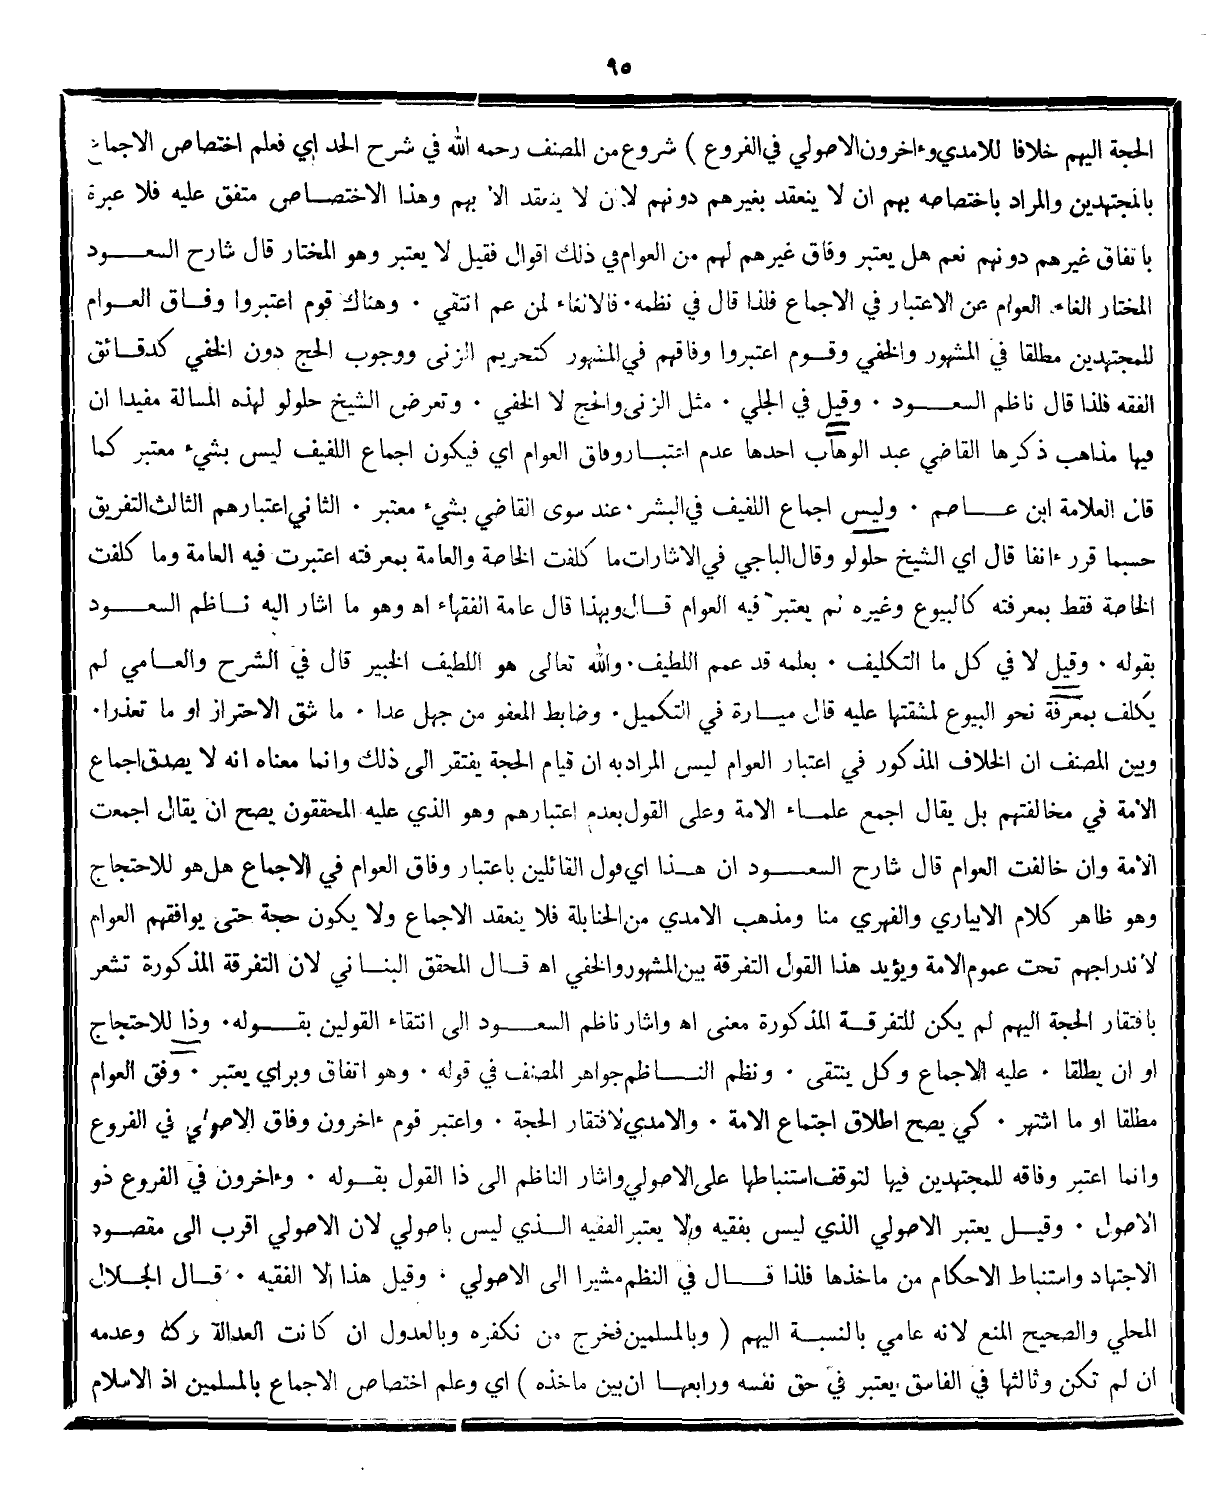 ٩٥
الحجة اليهم خلافا للامدي وءاخرون الاصولي في الفروع ) شروع من المصنف رحمه الله في شرح الحد اي فعلم اختصاص الاجماع
بالمجتهدين والمراد باختصاصه بهم ان لا ينعقد بغيرهم دونهم لان لا ينعقد الا بهم وهذا الاختصاص متفق عليه فلا عبرة
باتفاق غيرهم دونهم نعم هل يعتبر وفاق غيرهم لهم من العوام في ذلك اقوال فقيل لا يعتبر وهو المختار قال شارح السعود
المختار الغاء العوام عن الاعتبار في الاجماع فلذا قال في نظمه ٠ فالالغاء لمن عم انتقي ٠ وهناك قوم اعتبروا وفاق العوام
للمجتهدين مطلقا في المشهور والخفي وقوم اعتبروا وفاقهم في المشهور كتحريم الزنى ووجوب الحج دون الخفي كدقائق
الفقه فلذا قال ناظم السعود ٠ وقيل في الجلي ٠ مثل الزنى والحج لا الخفي ٠ وتعرض الشيخ حلولو لهذه المسالة مفيدا ان
فيها مذاهب ذكرها القاضي عبد الوهاب احدها عدم اعتبار وفاق العوام اي فيكون اجماع اللفيف ليس بشيء معتبر كما
قال العلامة ابن عاصم ٠ وليس اجماع اللفيف في البشر ٠ عند سوى القاضي بشيء معتبر ٠ الثاني اعتبارهم الثالث التفريق
حسبما قرر ءانفا قال اي الشيخ حلولو وقال الباجي في الاشارات ما كلفت الخاصة والعامة بمعرفته اعتبرت فيه العامة وما كلفت
الخاصة فقط بمعرفته كالبيوع وغيره لم يعتبر فيه العوام قال وبهذا قال عامة الفقهاء اه وهو ما اشار اليه ناظم السعود
بقوله ٠ وقيل لا في كل ما التكليف ٠ بعلمه قد عمم اللطيف ٠ والله تعالى هو اللطيف الخبير قال في الشرح والعامي لم
يكلف بمعرفة نحو البيوع لمشقتها عليه قال ميارة في التكميل ٠ وضابط المعفو من جهل عدا ٠ ما شق الاحتراز او ما تعذرا ٠
وبين المصنف ان الخلاف المذكور في اعتبار العوام ليس المراد به ان قيام الحجة يفتقر الى ذلك وانما معناه انه لا يصدق اجماع
الامة في مخالفتهم بل يقال اجمع علماء الامة وعلى القول بعدم اعتبارهم وهو الذي عليه المحققون يصح ان يقال اجمعت
الامة وان خالفت العوام قال شارح السعود ان هذا اي قول القائلين باعتبار وفاق العوام في الاجماع هل هو للاحتجاج
وهو ظاهر كلام الابياري والفهري منا ومذهب الامدي من الحنابلة فلا ينعقد الاجماع ولا يكون حجة حتى يوافقهم العوام
لاندراجهم تحت عموم الامة ويؤيد هذا القول التفرقة بين المشهور والخفي اه قال المحقق البناني لان التفرقة المذكورة تشعر
بافتقار الحجة اليهم لم يكن للتفرقة المذكورة معنى اه واشار ناظم السعود الى انتقاء القولين بقوله ٠ وذا للاحتجاج
او ان يطلقا ٠ عليه الاجماع وكل ينتقى ٠ ونظم الناظم جواهر المصنف في قوله ٠ وهو اتفاق وبراي يعتبر ٠ وفق العوام
مطلقا او ما اشتهر ٠ كي يصح اطلاق اجتماع الامة ٠ والامدي لافتقار الحجة ٠ واعتبر قوم ءاخرون وفاق الاصولي في الفروع
وانما اعتبر وفاقه للمجتهدين فيها لتوقف استنباطها على الاصولي واشار الناظم الى ذا القول بقوله ٠ وءاخرون في الفروع ذو
الاصول ٠ وقيل يعتبر الاصولي الذي ليس بفقيه ولا يعتبر الفقيه الذي ليس باصولي لان الاصولي اقرب الى مقصود
الاجتهاد واستنباط الاحكام من ماخذها فلذا قال في النظم مشيرا الى الاصولي ٠ وقيل هذا لا الفقيه ٠ قال الجلال
المحلي والصحيح المنع لانه عامي بالنسبة اليهم ( وبالمسلمين فخرج من نكفره وبالعدول ان كانت العدالة ركنا وعدمه
ان لم تكن وثالثها في الفاسق يعتبر في حق نفسه ورابعها ان بين ماخذه ) اي وعلم اختصاص الاجماع بالمسلمين اذ الاسلام